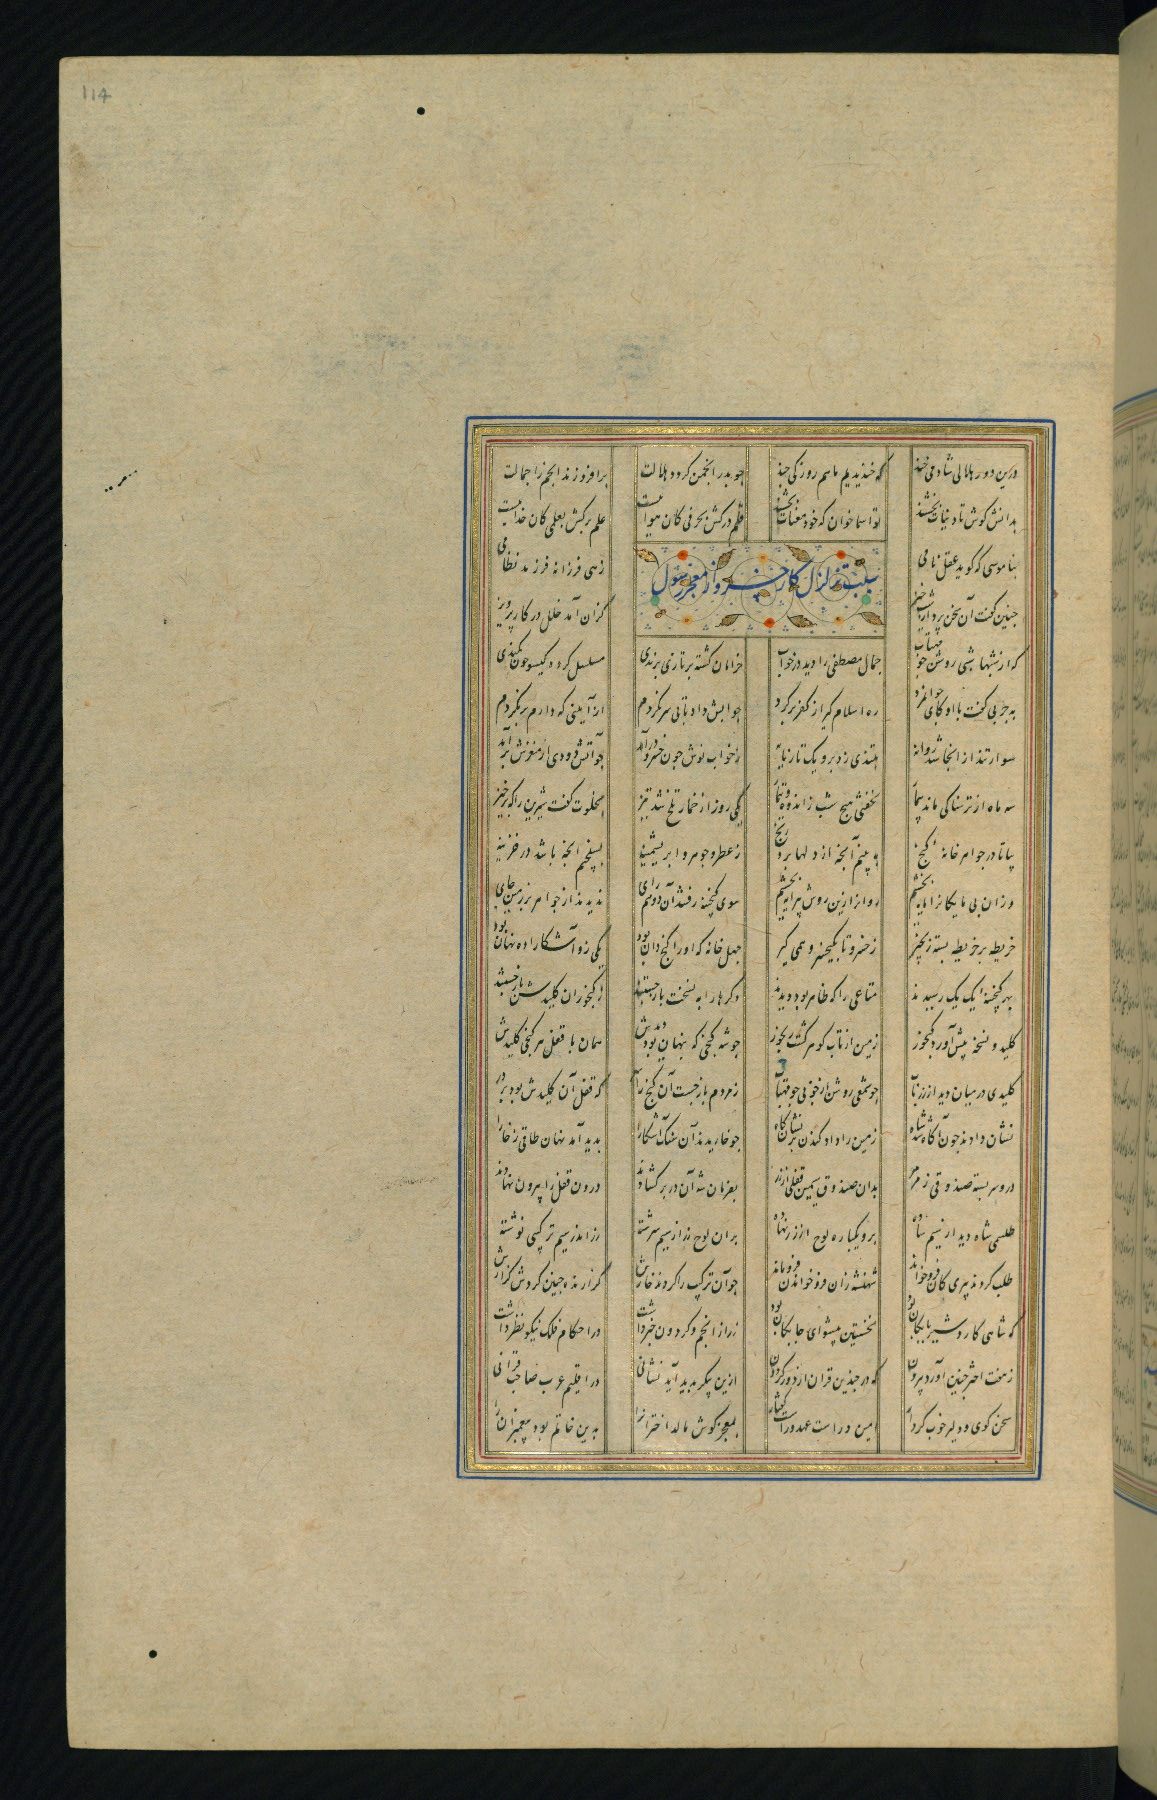 114
درین دور هلالی شاد می خند که خندیدیم ما هم روزکی چند چو بدر انجمن کردد هلالت برافروزند انجم را جمالت
بدانش کوش تا دنیات بخشند تو اسما خوان که خود معنات بخشند قلم درکش بحرفی کان هواییست علم برکش بعلمی کان خداییست
بناموسی که کوید عقل نامی زهی فرزانه فرزند نظامی
سبب تزلزل کار خسرو از معجز رسول
چنین کفت آن سخن پرداز شبخیز کزان آمد خلل در کار پرویز
که از شبها شبی روشن چو مهتاب جمال مصطفی را دید در خواب خرامان کشته بر تازی سمندی مسلسل کرده کیسو چون کمندی
به چربی کفت با او کای جوانمرد ره اسلام کیر از کفر برکرد جوابش داد تا بی سر نکردم ازین آیینی که دارم برنکردم
سوار تند از انجا شد روانه بتندی زد برو یک تازیانه ز خواب خوش چون خسرو درآمد چو آتش دودی از مغزش برآمد
سه ماه از ترسناکی ماند بیمار نخفتی هیچ شب زاندوه و تیمار یکی روز از خمار تلخ شد تیز بخلوت کفت شیرین را که برخیز
بیا تا در جواهر خانهٔ کنج به بینیم آنچه از دلها برد رنج ز عطر و جوهر و ابریشمینه بسنجیم آنچه باشد در خزینه
وزان بی مایکانرا مایه بخشیم روانرا زین روش پیرایه بخشیم سوی کنجینه رفتند آن دو هم رای ندیدند از جواهر بر زمین جای
خریطه بر خریطه بسته زنجیر ز خسرو تا بکیخسرو همی کیر چهل خانه که او را کنج دان بود یکی زو آشکارا ده نهان بود
بهر کنجینهٔ یک یک رسیدند متاعی را که ظاهر بود دیدند دکرها را به نسخت باز جستند ز کنجوران کلیدش باز جستند
کلید و نسخه پیش آورد کنجور زمین از تاب کوهر کشت رنجور چو شه کنجی که پنهان بود دیدش همان با قفل هر کنجی کلیدش
کلیدی در میان دید از زر ناب چو شمعی روشن از خوبی چو مهتاب ز مردم بازجست آن کنج را در که قفل آن کلیدش بود بر در
نشان دادند چون آکاه شد شاه زمین را داد کندن بر نشان کاه چو خاریدند آن سنک آشکارا پدید آمد نهان طاقی ز خارا
درو سر بسته صندوقی ز مرمر بدان صندوق سیمین قفلی از زر بفرمان شه آن در برکشادند درون قفل را بیرون نهادند
طلسمی شاه دید از سیم ساده برو یکپاره لوح از زر نهاده بران لوح زر از سیم سرشته زر اندر سیم ترکیبی نوشته
طلب کردند پیری کان فروخواند شهنشه زان فروخواندن فروماند چو آن ترکیب را کردند خارش کزارنده چنین کردش کزارش
که شاهی کاردشیر بابکان بود نخستین پیشوای چابکان بود ز راز انجم و کردون خبر داشت در احکام فلک نیکو نظر داشت
ز هفت اختر چنین آورد بیرون که در چندین قران از دور کردون ازین پیکر پدید آید نشانی در اقلیم عرب صاحب قرانی
سخن کوی و دلیر و خوب کردار امین و راست عهد و راست کفتار بمعجز کوش مالد اختران را بدین خاتم بود پیغمبران را